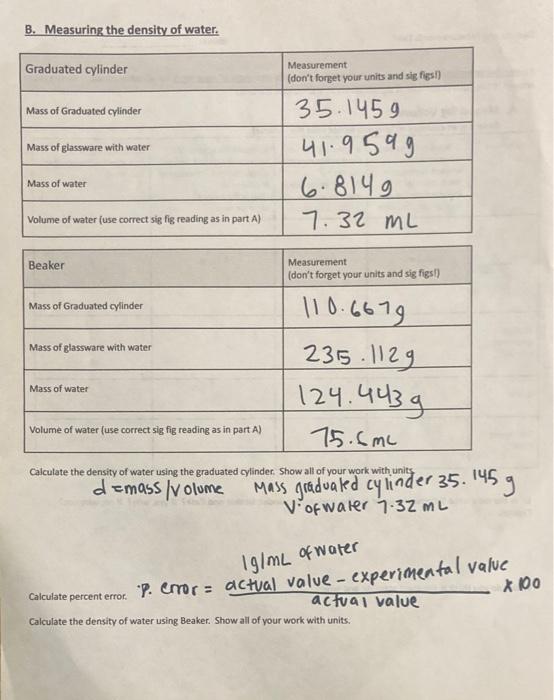 B. Measuring the density of water.
Graduated cylinder
Measurement
(don't forget your units and sig figs!)
Mass of Graduated cylinder
35.145g
Mass of glassware with water
41.959g
Mass of water
6.814g
Volume of water (use correct sig fig reading as in part A)
7.32 mL
Beaker
Measurement
(don't forget your units and sig figs!)
Mass of Graduated cylinder
110.667g
Mass of glassware with water
235.112g
Mass of water
124.443g
Volume of water (use correct sig fig reading as in part A)
Calculate the density of water using the graduated cylinder. Show all of your work with units
d=mass/volume Mass graduated cylinder 35.145 g
V. of water 7.32 mL
1g/mL of water
Calculate percent error. P. error = actual value - experimental value x 100
actual value
Calculate the density of water using Beaker. Show all of your work with units.